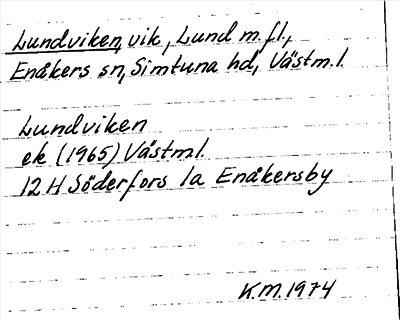 Lundviken, vik, Lund m.fl.,
Enåkers sn, Simtuna hd, Västm.l.
Lundviken
ek (1965) Västml.
12 H Söderfors 1a Enåkersby
K.M. 1974